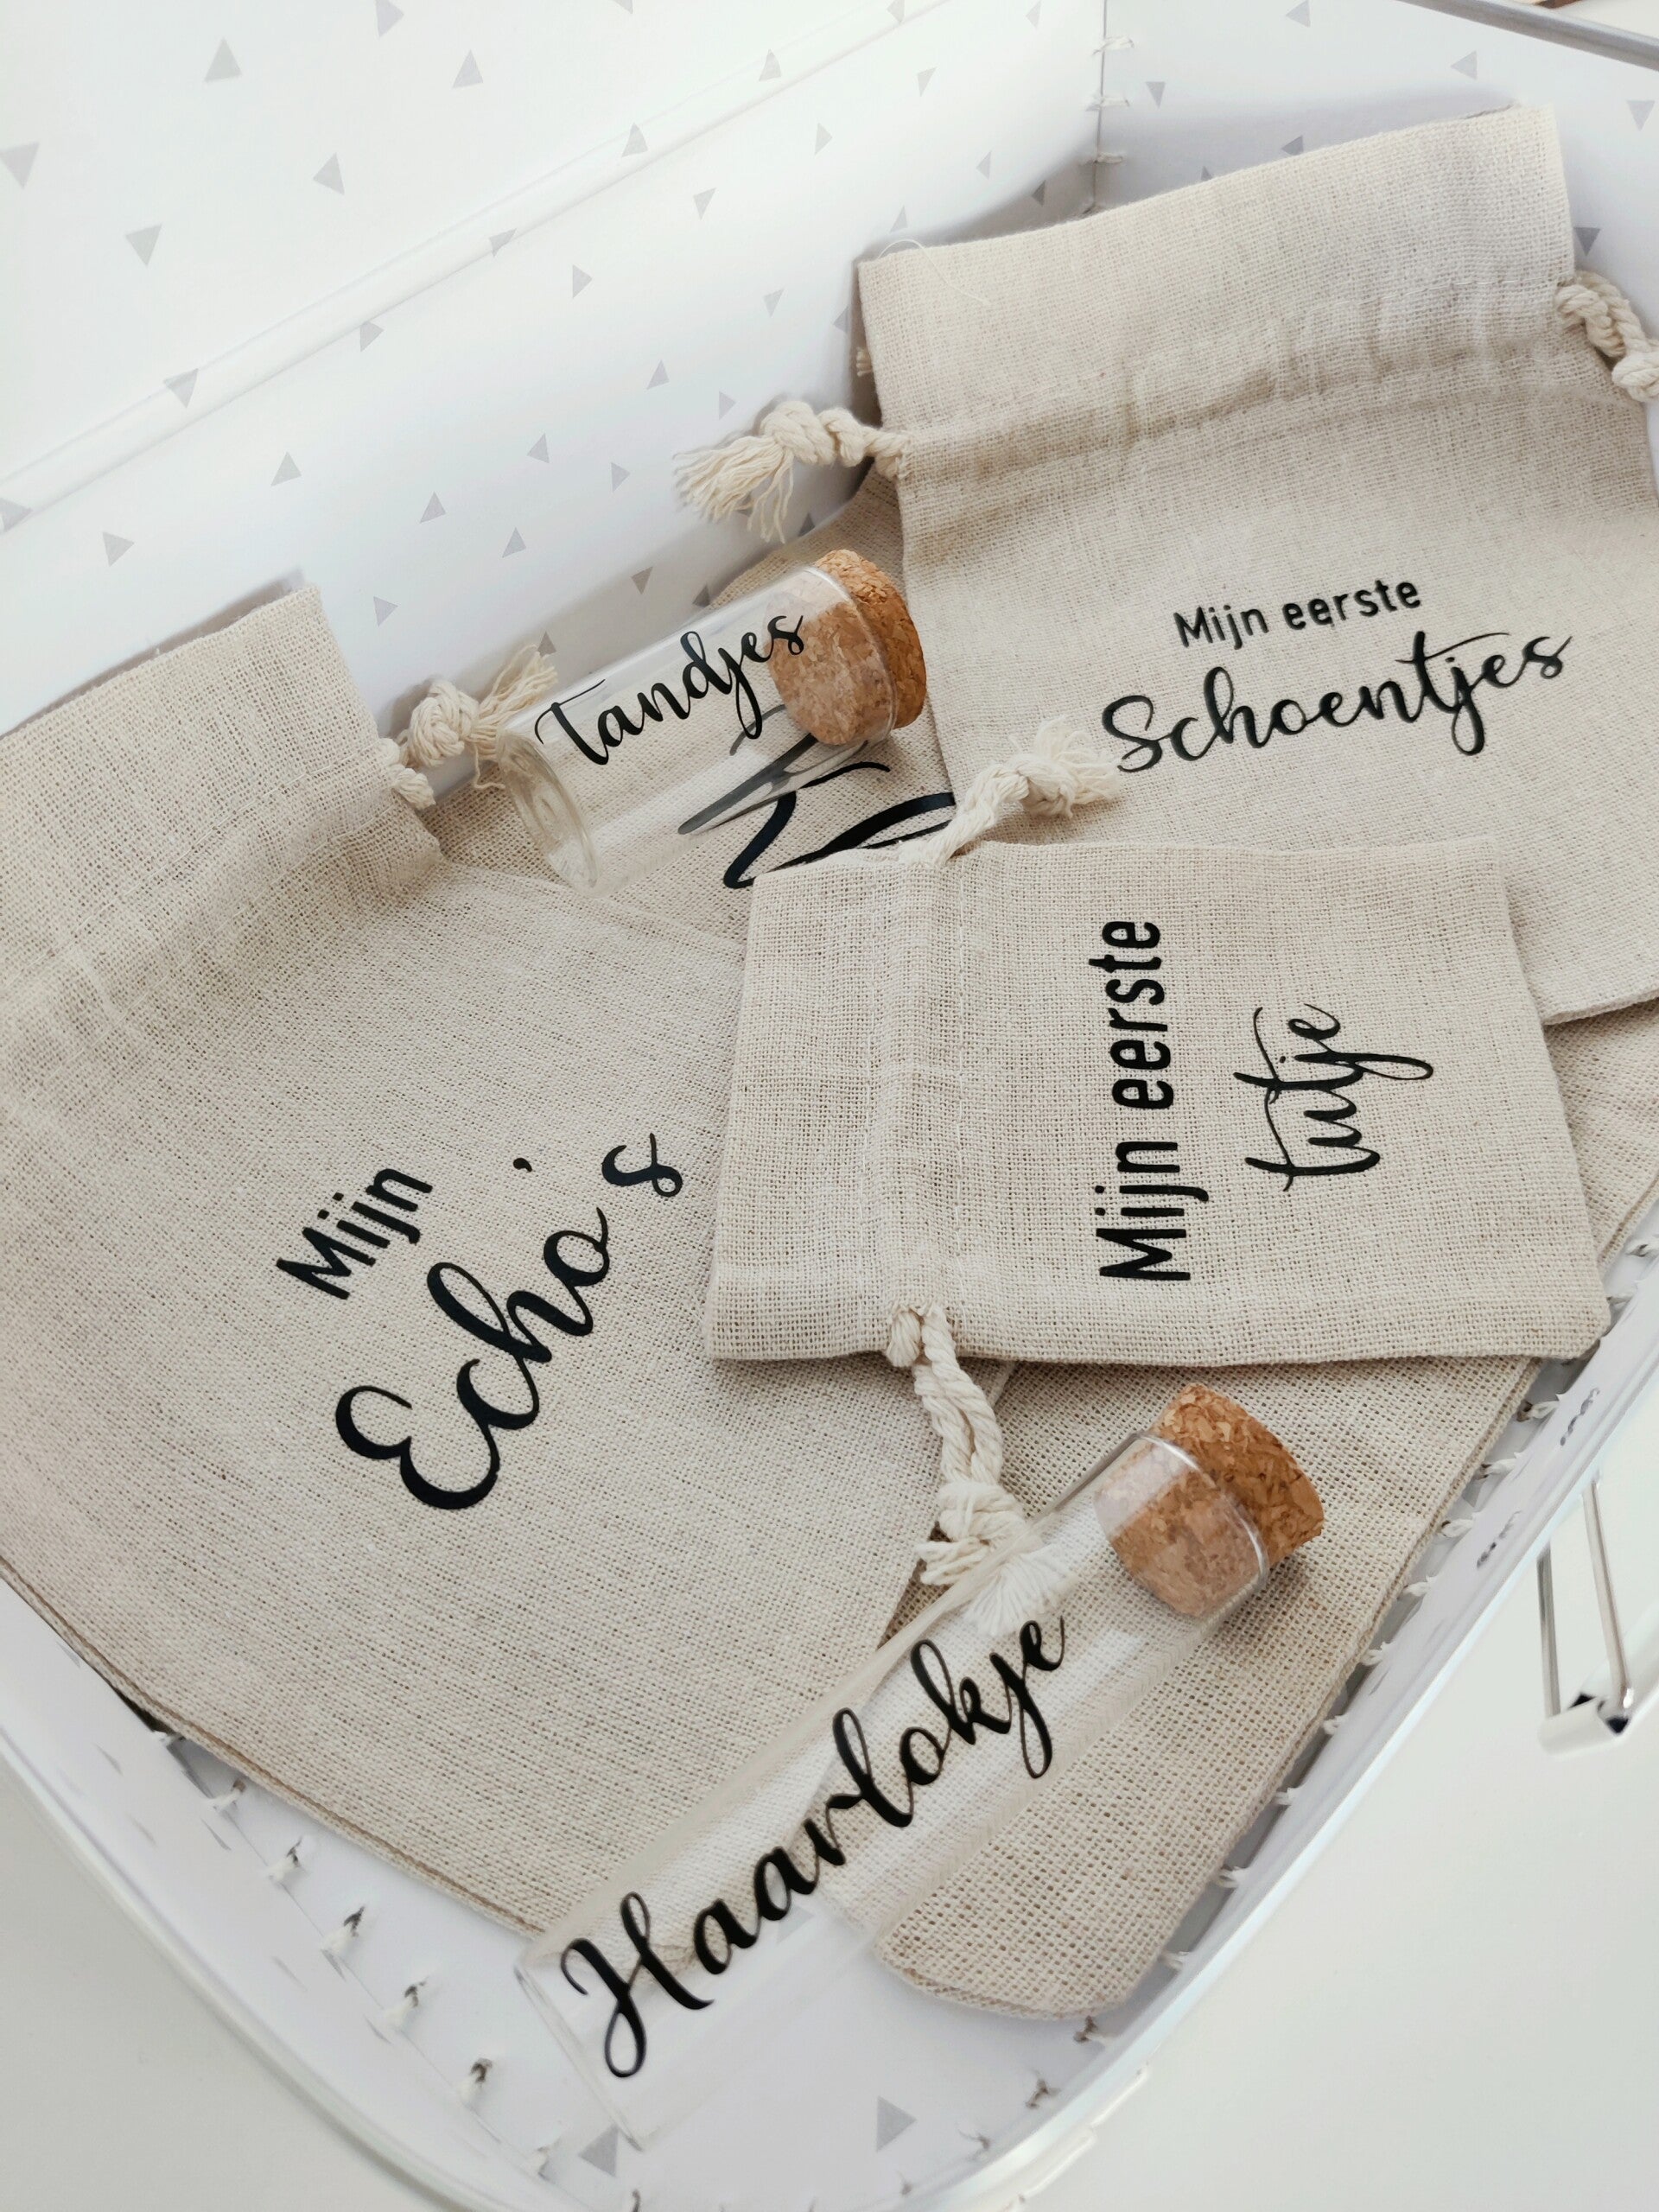 Mijn eerste
Schoentjes
Tandjes
Mijn eerste
tutje
Mijn
Echo's
Haarlokje